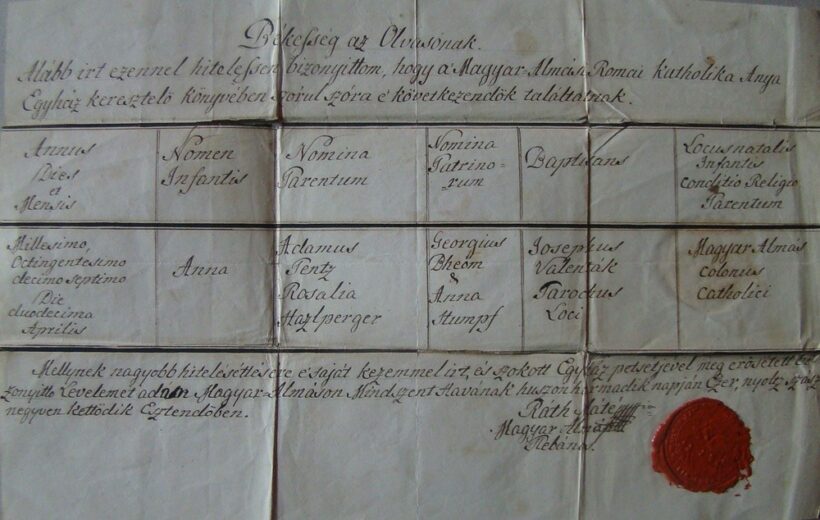 Békesseg az Olvasónak.
Alább irt ezennel hitelessen bizonyittom, hogy a Magyar Almási Romai Katholika Anya
Egyház keresztelö könyvében szórul szóra é következendök találtatnak.
Annus
Dies
et
Mensis
Nomen
Infantis
Nomina
Parentum
Nomina
Patrino-
rum
Baptisans
Locus natalis
Infantis
Conditio Religio
Parentum
Millesimo,
Octingentesimo
decimo septimo
Die
duodecima
Aprilis
Anna
Adamus
Pentz
Rosalia
Hazlperger
Georgius
Bheöm
&
Anna
Stumpf
Josephus
Valenták
Parochus
Loci
Magyar Almás
Colonus
Catholici
Mellynek nagyobb hitelesétésere é saját kezemmel irt, és szokott Egyház petsetjével meg erösétett bi-
zonyitto Levelemet adám Magyar Almáson Mindszent Havának huszon harmadik napján Ezer, nyoltz szász
negyven kettödik Esztendöben.
Ráth Máté
Magyar Almási
Plebános.